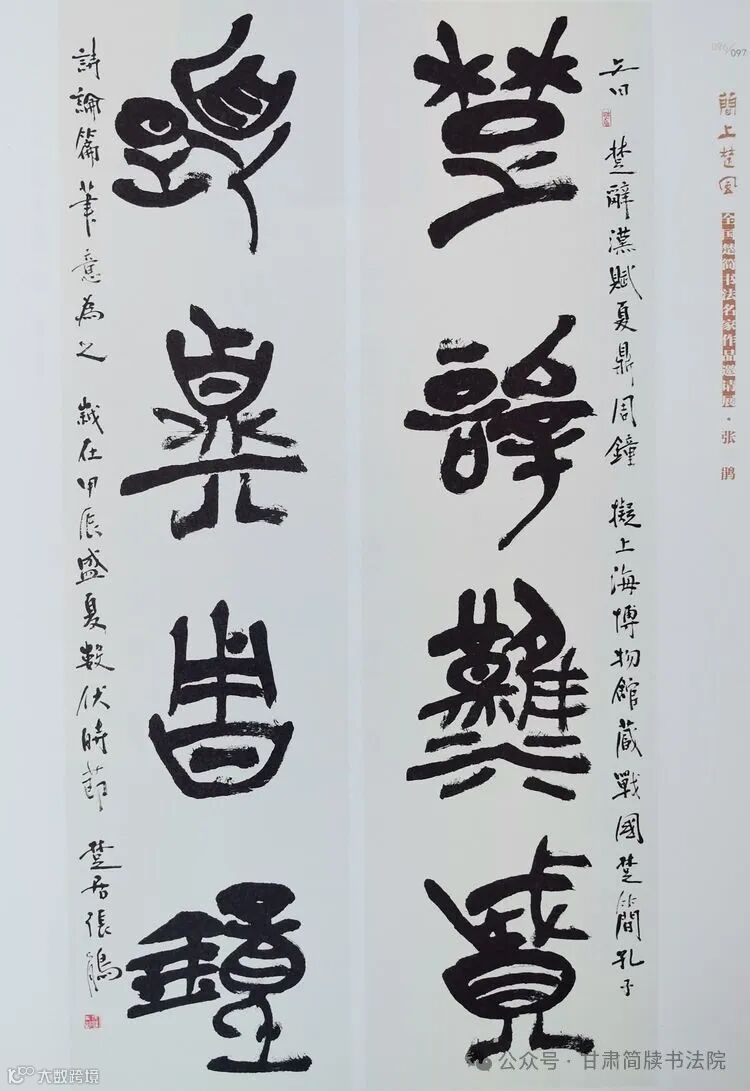 096/097
簡上楚風
全国楚简书法名家作品邀请展·张鹃
文曰 楚辭漢賦夏鼎周鐘 擬上海博物館藏戰國楚簡孔子
楚辭漢賦
夏鼎周鐘
詩論篇筆意為之 歲在甲辰盛夏數伏時節 楚居張鵑
大数跨境
公众号·甘肃简牍书法院